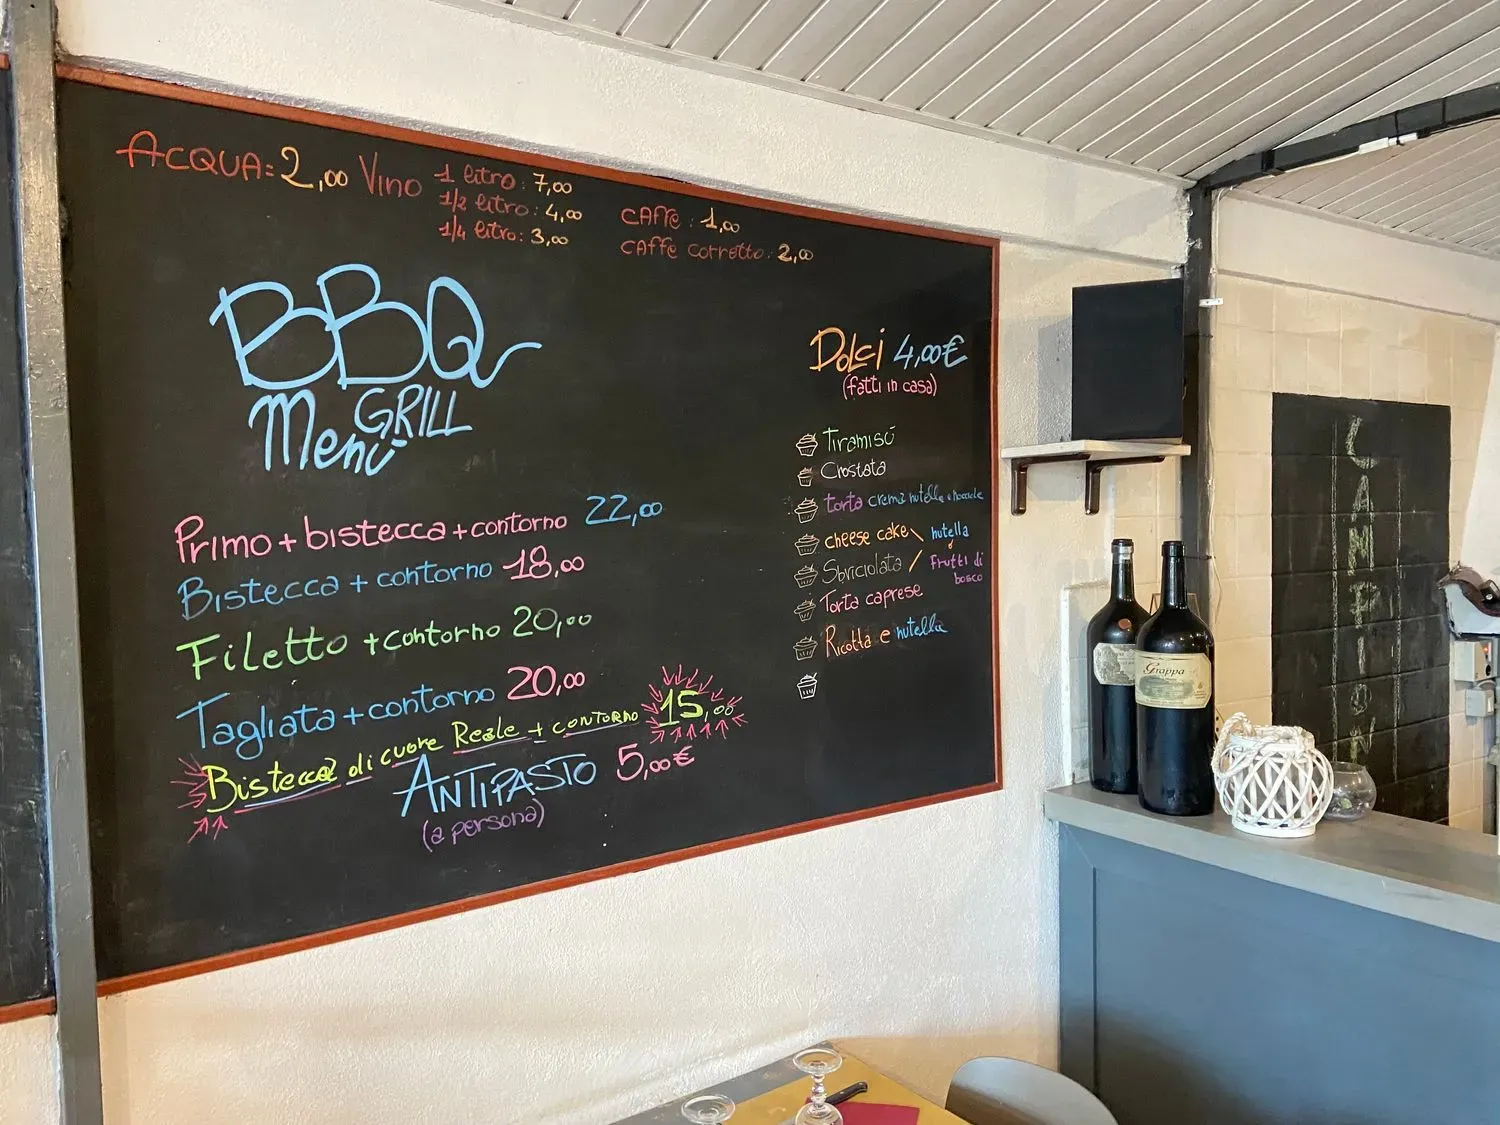 ACQUA= 2,00 Vino 1 litro: 7,00
1/2 litro: 4,00
1/4 litro: 3,00
CAFFè: 1,00
CAFFè corretto: 2,00
BBQ
GRILL
Menù
Primo + bistecca + contorno 22,00
Bistecca + contorno 18,00
Filetto + contorno 20,00
Tagliata + contorno 20,00
Bistecca di cuore Reale + contorno 15,00
ANTIPASTO 5,00€
(a persona)
Dolci 4,00€
(fatti in casa)
Tiramisú
Crostata
torta crema nutella e nocciole
cheese cake \ nutella
o
Sbriciolata / Frutti di
bosco
Torta caprese
Ricotta e nutella
Grappa